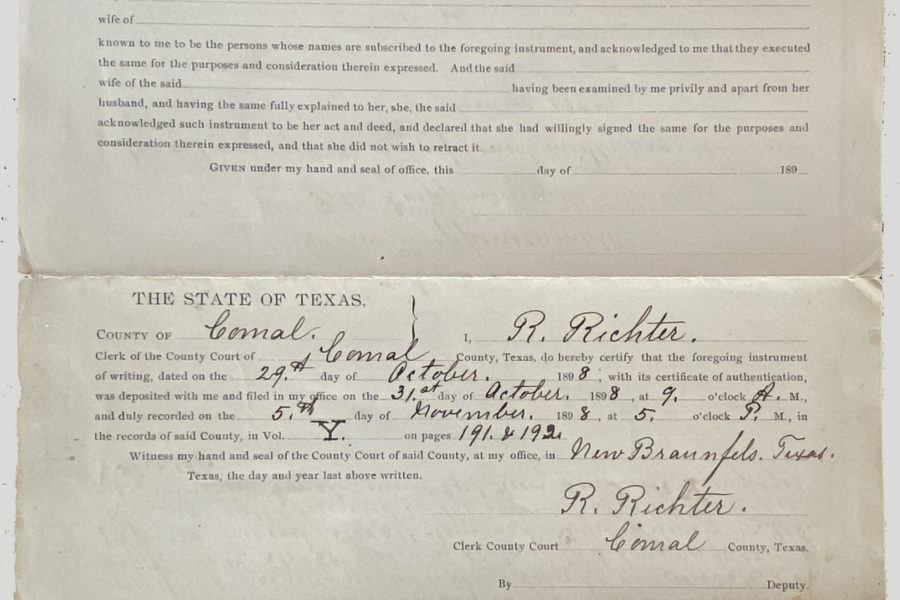 wife of
known to me to be the persons whose names are subscribed to the foregoing instrument, and acknowledged to me that they executed
the same for the purposes and consideration therein expressed. And the said
wife of the said having been examined by me privily and apart from her
husband, and having the same fully explained to her, she, the said
acknowledged such instrument to be her act and deed, and declared that she had willingly signed the same for the purposes and
consideration therein expressed, and that she did not wish to retract it.
GIVEN under my hand and seal of office, this day of 189
THE STATE OF TEXAS,
COUNTY OF Comal. I, R. Richter.
Clerk of the County Court of Comal County, Texas, do hereby certify that the foregoing instrument
of writing, dated on the 29.th day of October. 1898, with its certificate of authentication,
was deposited with me and filed in my office on the 31.st day of October. 1898, at 9. o'clock A. M.,
and duly recorded on the 5.th day of November. 1898, at 5. o'clock P. M., in
the records of said County, in Vol. Y. on pages 191. & 192.
Witness my hand and seal of the County Court of said County, at my office, in New Braunfels. Texas.
Texas, the day and year last above written.
R. Richter.
Clerk County Court Comal County, Texas.
By Deputy.